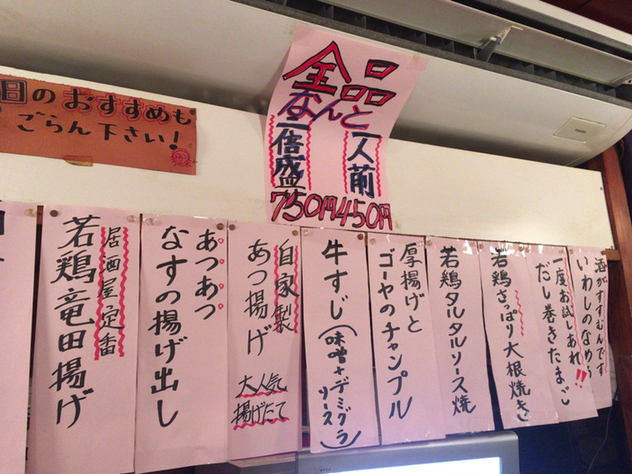 全品
なんと
一人前
二倍盛
450円
750円
日のおすすめも
ごらん下さい!
酒がすすむんです
いわしのなめろう
一度お試しあれ!!
だし巻きたまご
若鶏さっぱり大根焼き
若鶏タルタルソース焼
厚揚げと
ゴーヤのチャンプル
牛すじ(味噌+デミグラソース)
自家製
あつ揚げ
大人気
揚げたて
あつあつ
なすの揚げ出し
居酒屋定番
若鶏竜田揚げ